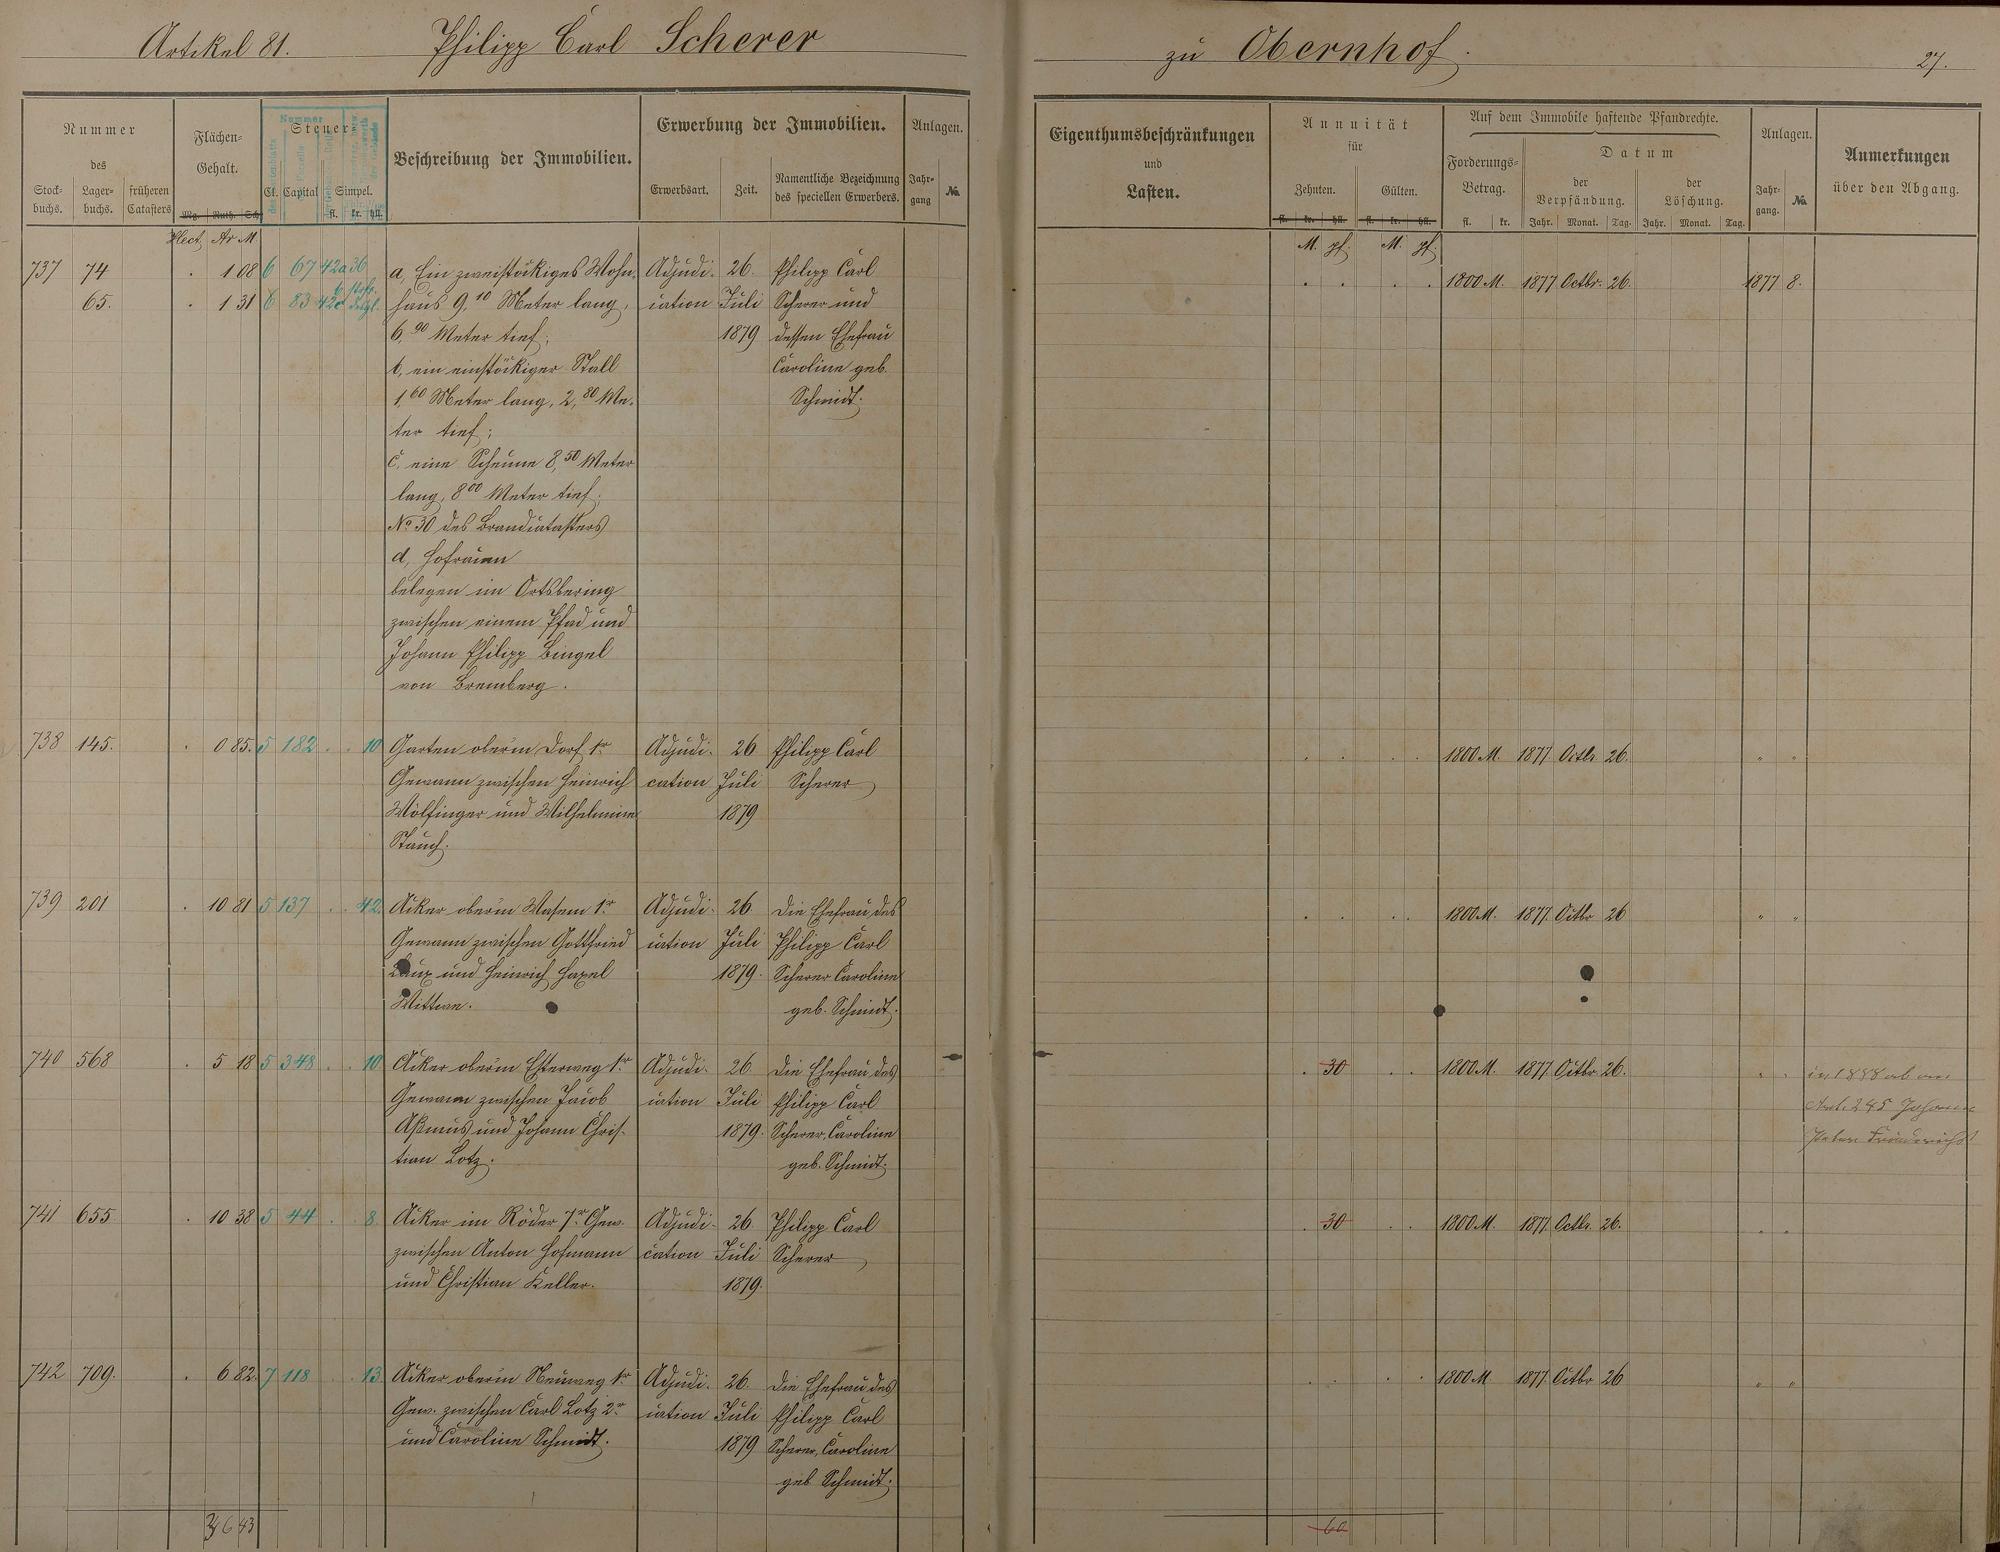 Artikel 81. Philipp Carl Scherer
zu Obernhof.
27.
Nummer
des
Stock-
buchs.
Lager-
buchs.
früheren
Catasters
Flächen-
Gehalt.
Mg. Ruth. Sch.
Hect. Ar M
Nummer
Steuer
Cl. Capital Simpel.
fl. kr. hll.
Beschreibung der Immobilien.
Erwerbung der Immobilien.
Erwerbsart. Zeit.
Namentliche Bezeichnung
des speciellen Erwerbers.
Anlagen.
Jahr-
gang
No.
Eigenthumsbeschränkungen
und
Lasten.
Annuität
für
Zehnten. Gülten.
fl. kr. hll. fl. kr. hll.
M. pf. M. pf.
Auf dem Immobile haftende Pfandrechte.
Forderungs-
Betrag.
fl. kr.
Datum
der
Verpfändung.
der
Löschung.
Jahr. Monat. Tag. Jahr. Monat. Tag.
Anlagen.
Jahr-
gang. No.
Anmerkungen
über den Abgang.
737 74 . 1 08 6 67 42a 36
65. . 1 31 6 83 42c
a, Ein zweistöckiges Wohn-
haus 9,10 Meter lang,
6,90 Meter tief;
b, ein einstöckiger Stall
1,60 Meter lang, 2,80 Me-
ter tief;
c, eine Scheune 8,50 Meter
lang, 8,00 Meter tief;
No 30 des Brandcatasters
d, Hofraum
belegen im Ortsbering
zwischen einem Pfad und
Johann Philipp Bingel
von Bremberg.
Adjudi-
cation
26
Juli
1879
Philipp Carl
Scherer und
dessen Ehefrau
Caroline geb.
Schmidt.
1800 M. 1877 Octbr. 26. 1877 8.
738 145. . 0 85. 5 182 . . 10
Garten oberm Dorf 1r
Gewann zwischen Heinrich
Wölfinger und Wilhelmine
Stauch.
Adjudi-
cation
26
Juli
1879
Philipp Carl
Scherer
1800 M. 1877 Octbr 26. " "
739 201 . 10 81 5 137 . . 42.
Acker oberm Wasem 1r
Gewann zwischen Gottfried
Laux und Heinrich Haxel
Wittwe.
Adjudi-
cation
26
Juli
1879.
Die Ehefrau des
Philipp Carl
Scherer Caroline
geb. Schmidt.
1800 M. 1877. Octbr 26 " "
740 568 . 5 18 5 348 . . 10
Acker oberm Esterweg 1r
Gewann zwischen Jacob
Aßmus und Johann Chris-
tian Lotz.
Adjudi-
cation
26
Juli
1879.
Die Ehefrau des
Philipp Carl
Scherer, Caroline
geb. Schmidt.
30
1800 M. 1877 Octbr. 26. " "
in 1888 ab an
Art. 245 Johann
Peter
741 655 . 10 38 5 44 . . 8.
Acker im Röder 7r Gew.
zwischen Anton Hofmann
und Christian Keller.
Adjudi-
cation
26
Juli
1879.
Philipp Carl
Scherer
30
1800 M. 1877. Octbr. 26. " "
742 709. . 6 82. 7 118 . . 13
Acker oberm Neuweg 1r
Gew. zwischen Carl Lotz 2r
und Caroline Schmidt.
Adjudi-
cation
26.
Juli
1879
Die Ehefrau des
Philipp Carl
Scherer, Caroline
geb Schmidt.
1800 M 1877. Octbr 26 " "
36 43
60